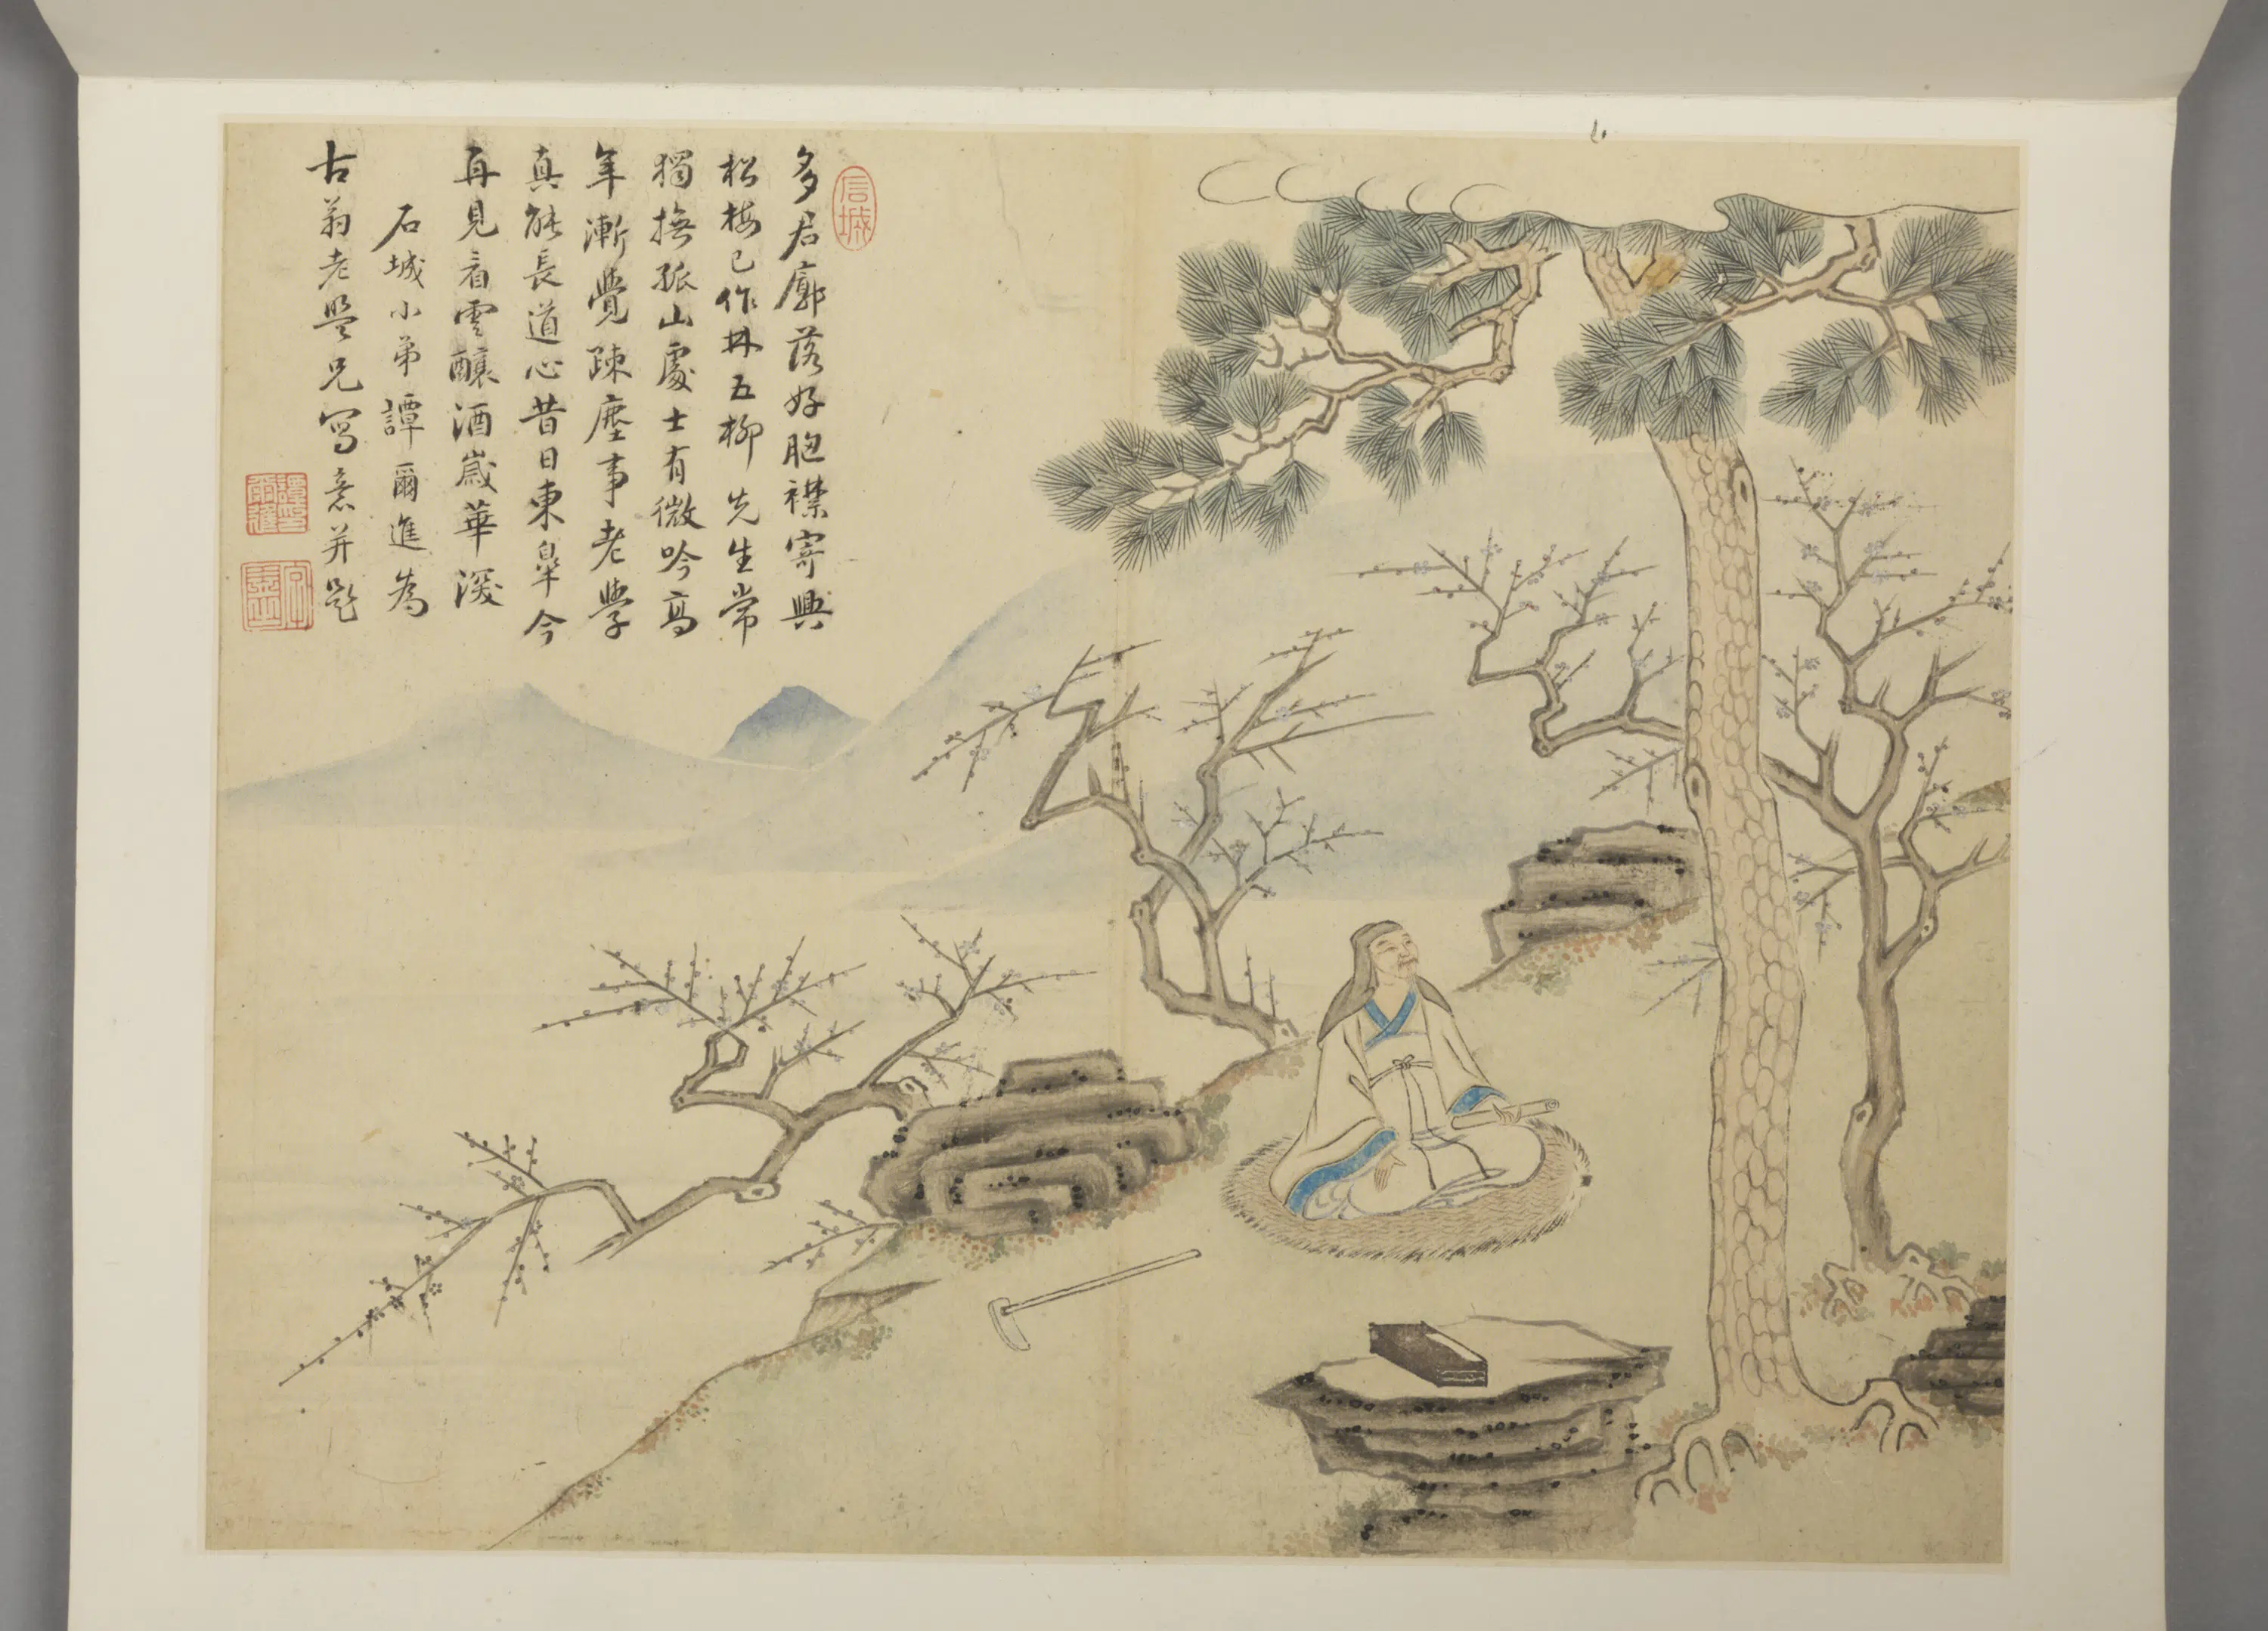 信城
多君廓落好胸襟寄興
松梅已作林五柳先生常
獨撫孤山處士有微吟高
年漸覺疎塵事老學
真能長道心昔日東皐今
再見看雲釀酒歲華深
石城小弟譚爾進為
古翁老盟兄寫意并題
譚印爾進